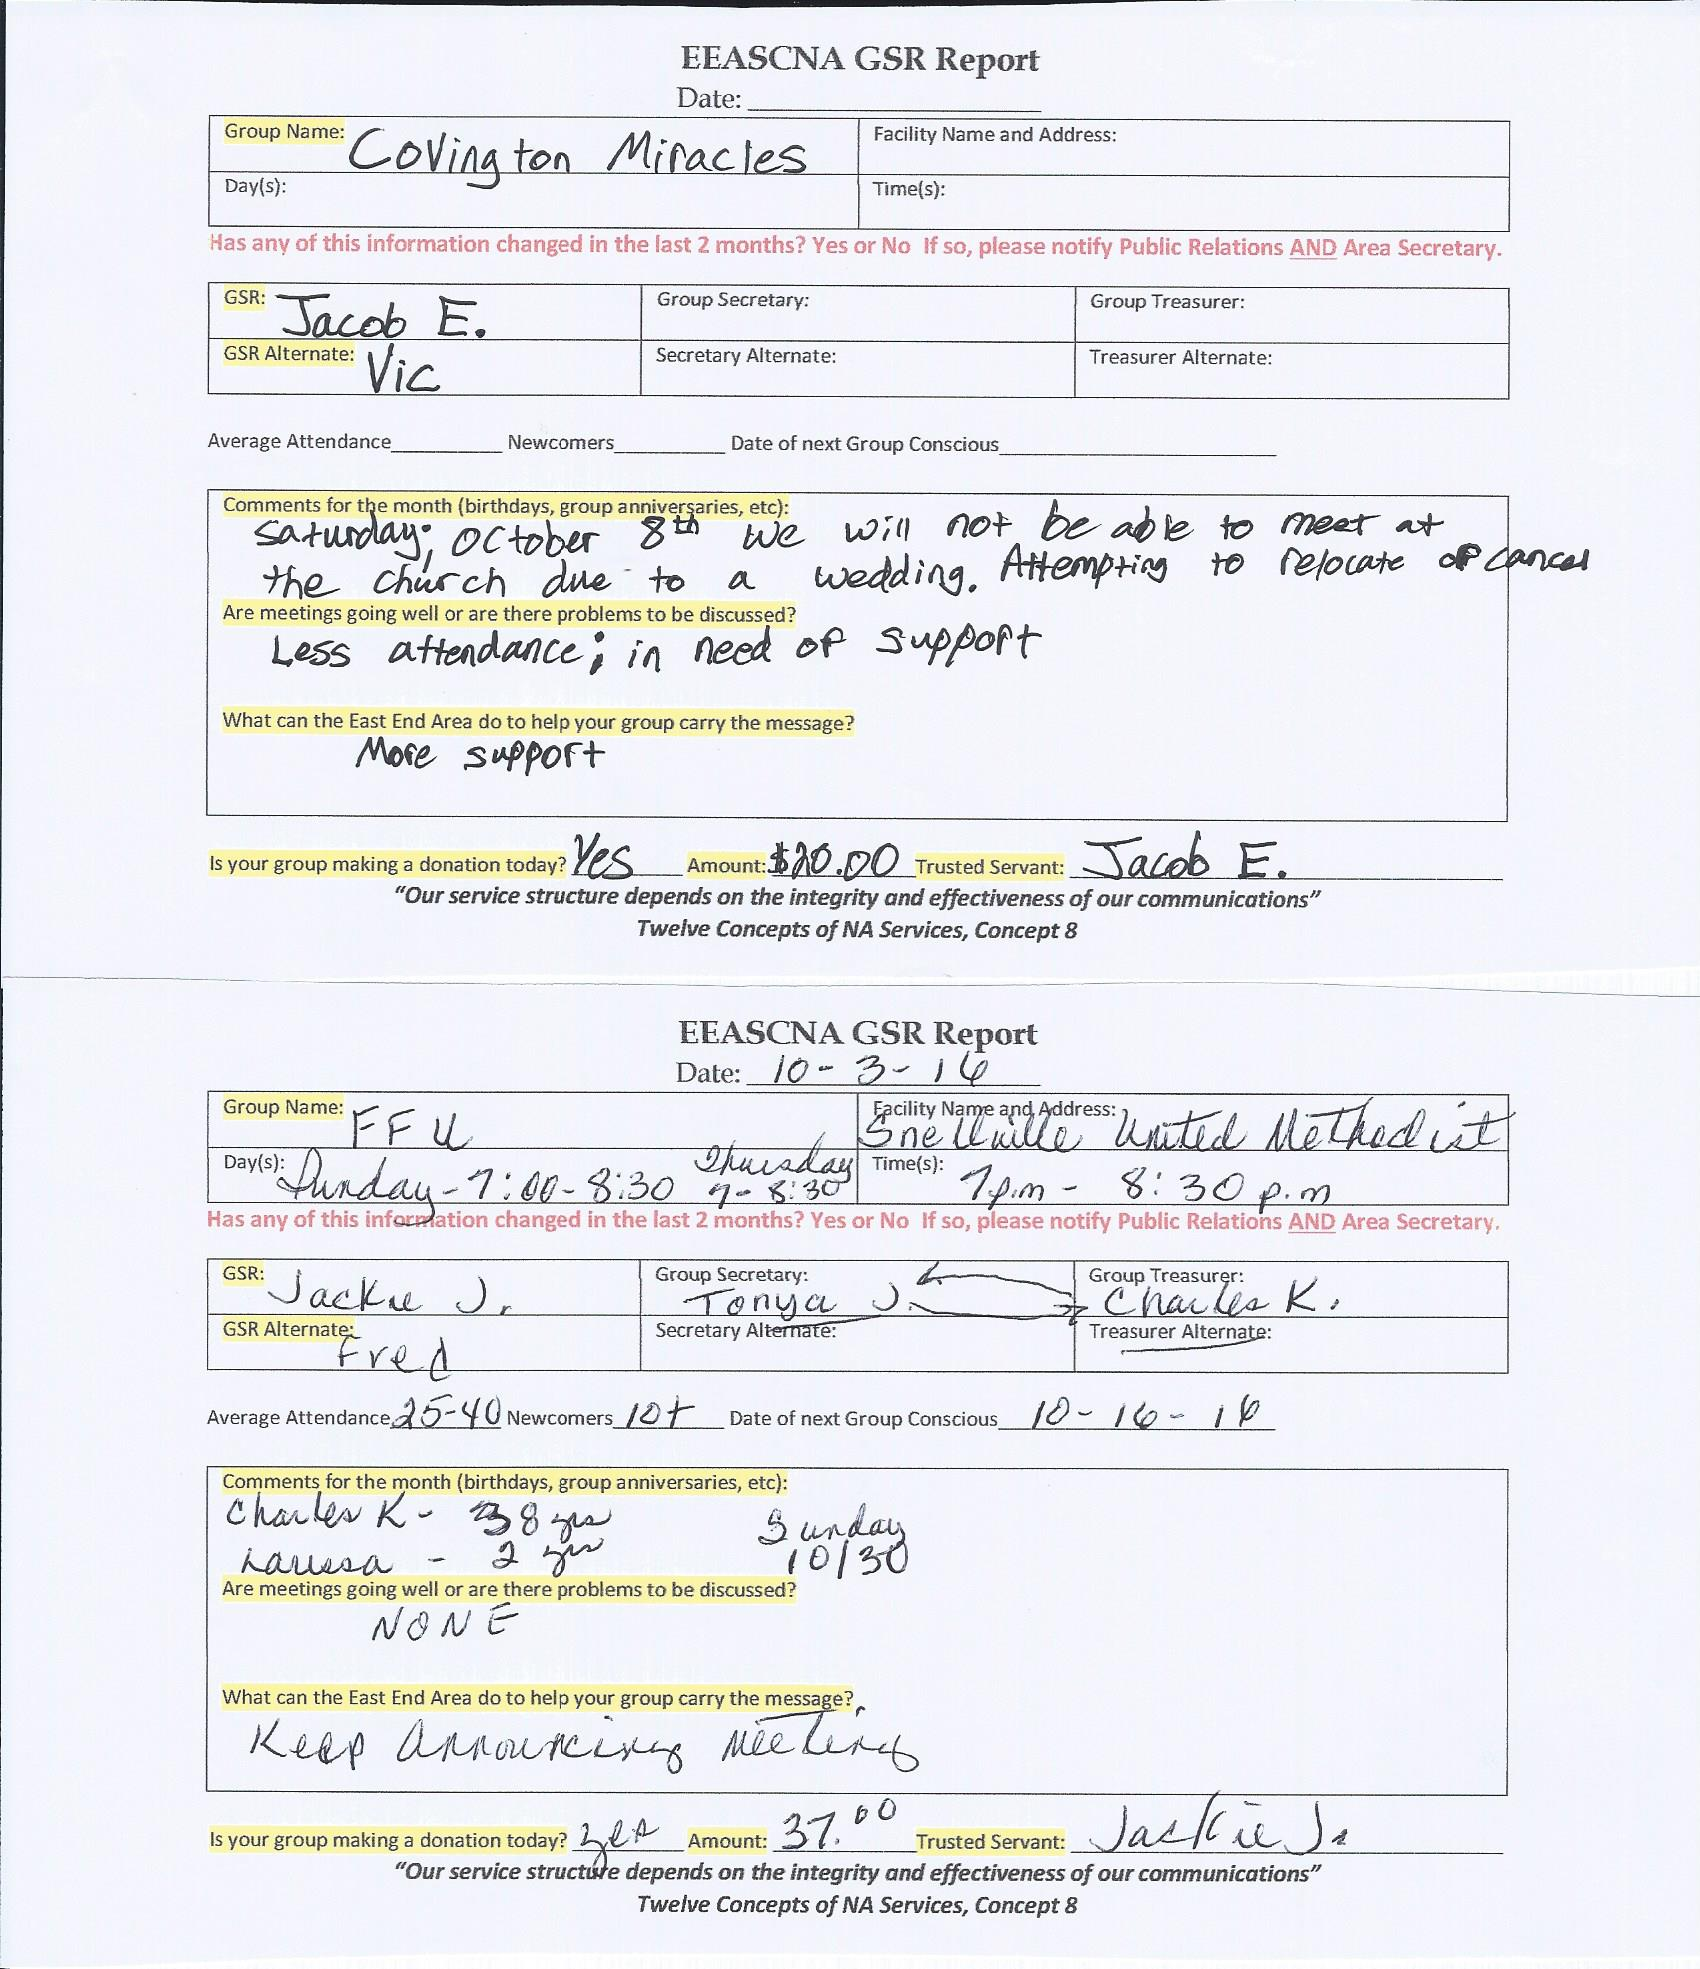 EEASCNA GSR Report
Date:
Group Name: Covington Miracles Facility Name and Address:
Day(s): Time(s):
Has any of this information changed in the last 2 months? Yes or No If so, please notify Public Relations AND Area Secretary.
GSR: Jacob E. Group Secretary: Group Treasurer:
GSR Alternate: Vic Secretary Alternate: Treasurer Alternate:
Average Attendance Newcomers Date of next Group Conscious
Comments for the month (birthdays, group anniversaries, etc):
Saturday, October 8th we will not be able to meet at
the church due to a wedding. Attempting to relocate or cancel
Are meetings going well or are there problems to be discussed?
Less attendance; in need of support
What can the East End Area do to help your group carry the message?
More support
Is your group making a donation today? Yes Amount: $20.00 Trusted Servant: Jacob E.
"Our service structure depends on the integrity and effectiveness of our communications"
Twelve Concepts of NA Services, Concept 8
EEASCNA GSR Report
Date: 10-3-16
Group Name: FFU Facility Name and Address: Snellville United Methodist
Day(s): Sunday-7:00-8:30 Thursday 7-8:30 Time(s): 7p.m - 8:30 p.m
Has any of this information changed in the last 2 months? Yes or No If so, please notify Public Relations AND Area Secretary.
GSR: Jackie J. Group Secretary: Tonya J. Group Treasurer: Charles K.
GSR Alternate: Fred Secretary Alternate: Treasurer Alternate:
Average Attendance 25-40 Newcomers 10+ Date of next Group Conscious 10-16-16
Comments for the month (birthdays, group anniversaries, etc):
Charles K - 38 yrs Sunday
Larissa - 2 yrs 10/30
Are meetings going well or are there problems to be discussed?
NONE
What can the East End Area do to help your group carry the message?
Keep Announcing Meeting
Is your group making a donation today? yes Amount: 37.00 Trusted Servant: Jackie J.
"Our service structure depends on the integrity and effectiveness of our communications"
Twelve Concepts of NA Services, Concept 8